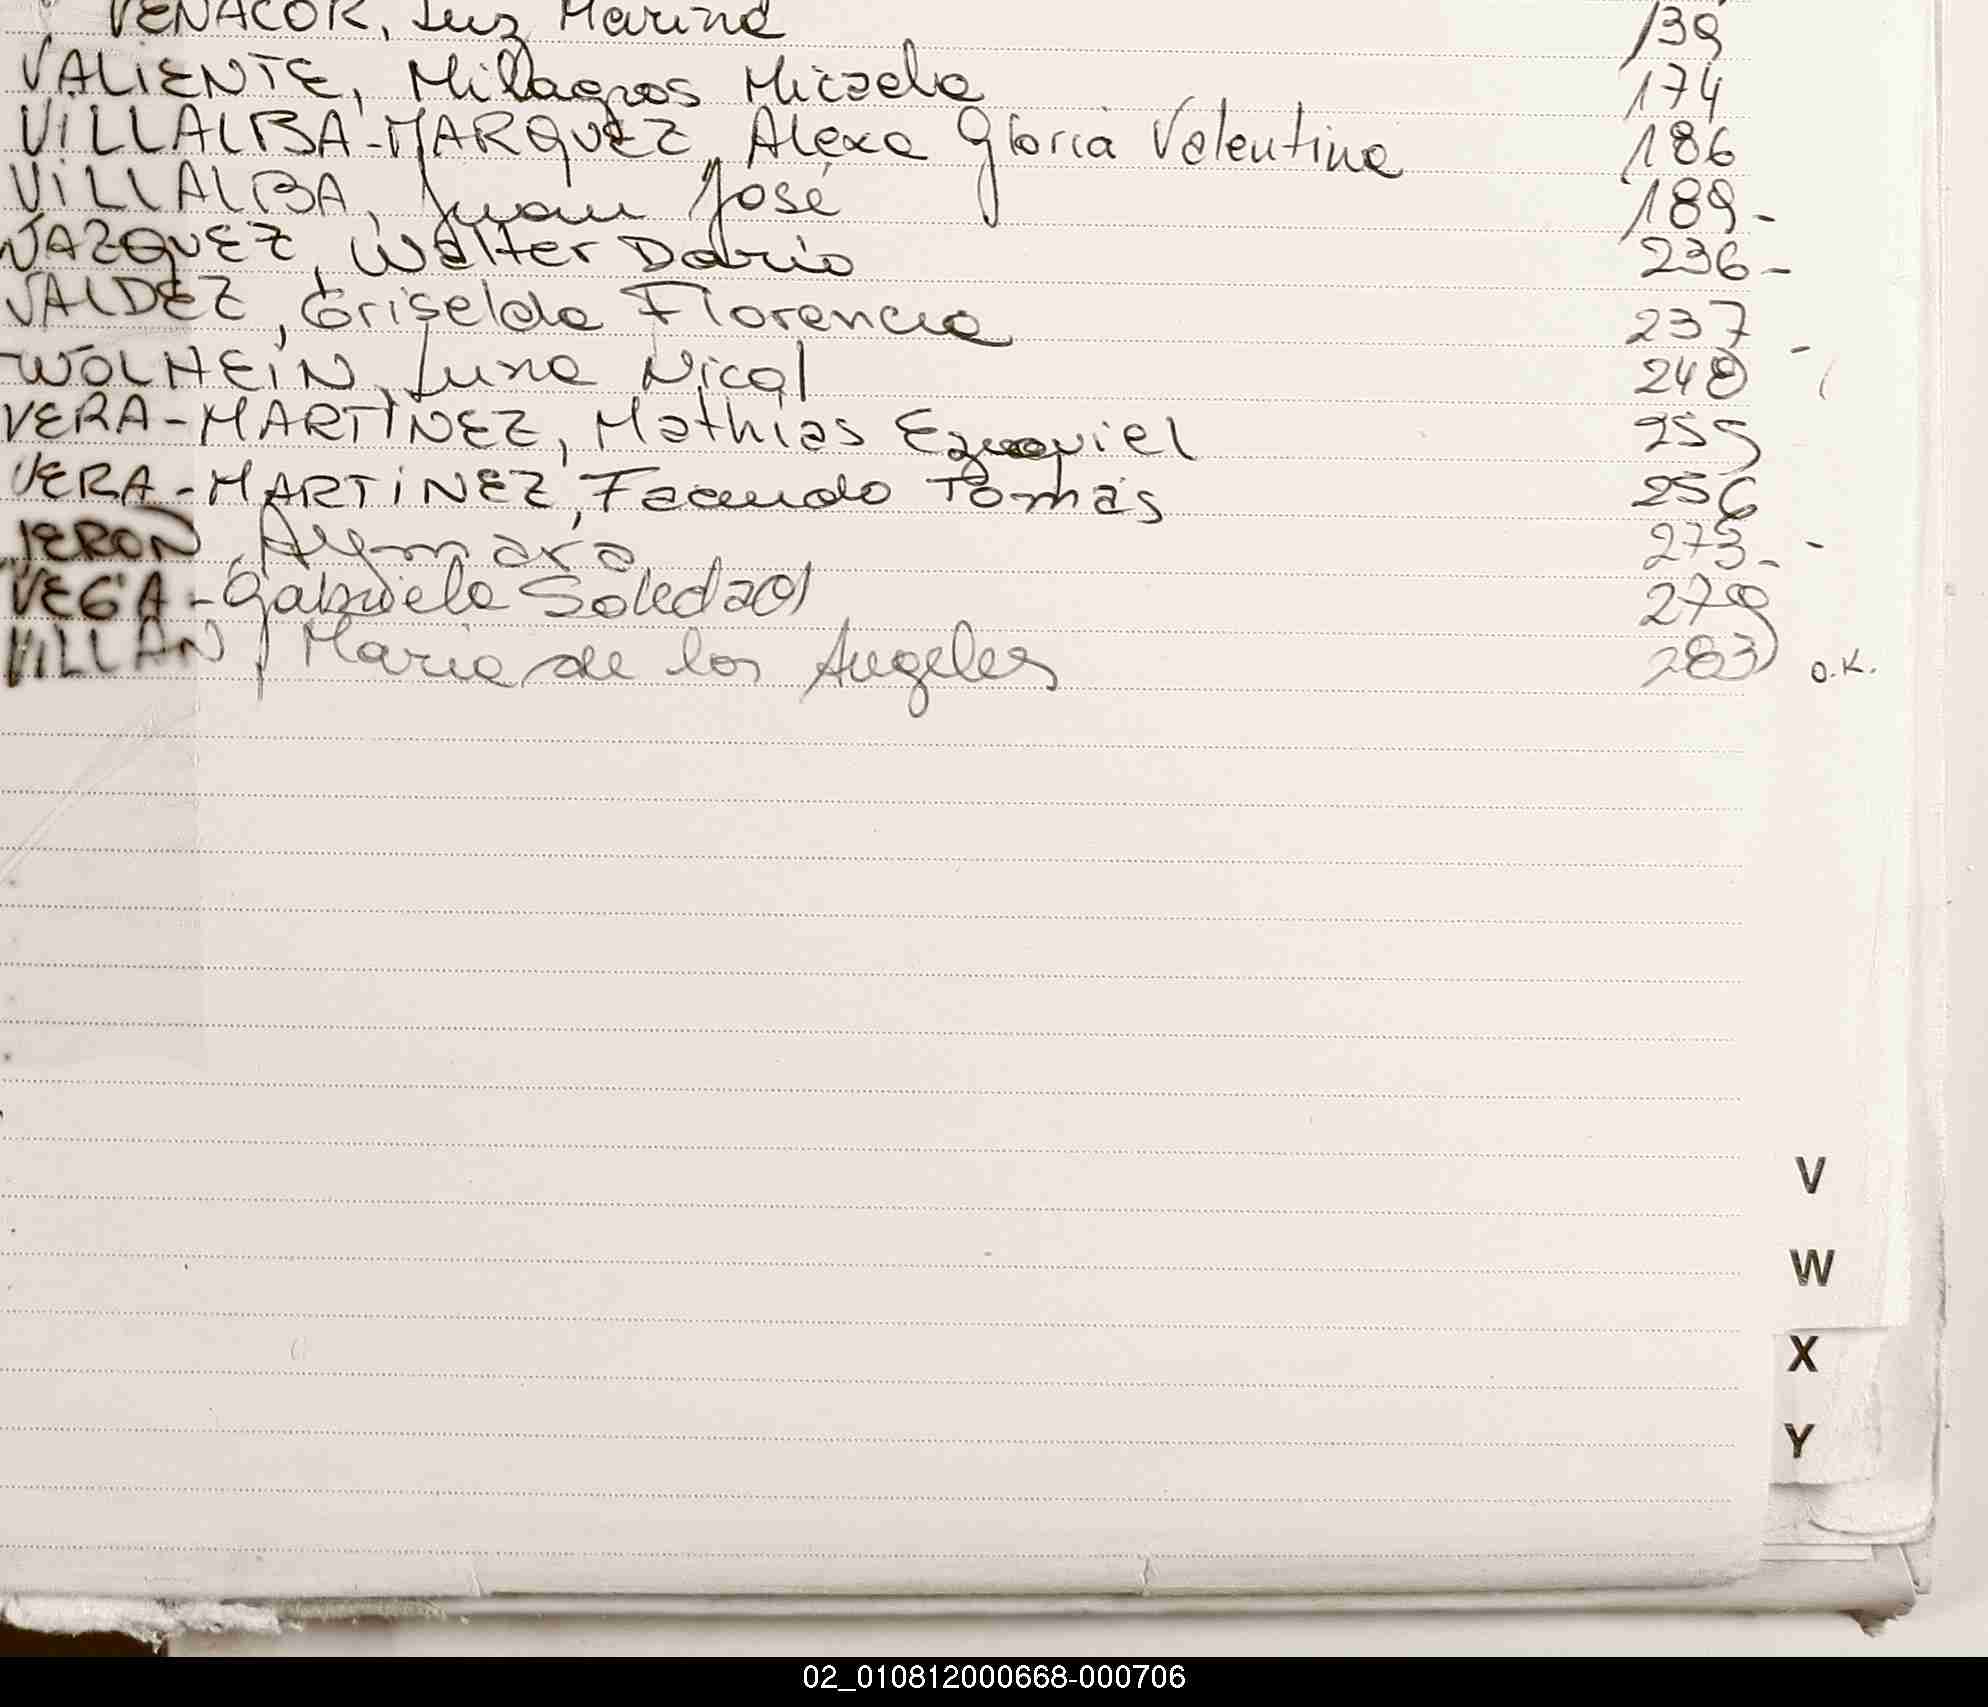 VENACOR, Luz Marina 139
VALIENTE, Milagros Micaela 174
VILLALBA-MARQUEZ, Alexa Gloria Valentina 186
VILLALBA, Juan José 189-
VAZQUEZ, Walter Dario 236-
VALDEZ, Griselda Florencia 237 -
WOLHEIN, Luna Nicol 240
VERA-MARTINEZ, Mathias Ezequiel 255
VERA-MARTINEZ, Facundo Tomás 256
Aymara 273- -
VEGA - Gabriela Soledad 279
VILLÁN, Maria de los Angeles 283 O.K.
V
W
X
Y
02_010812000668-000706